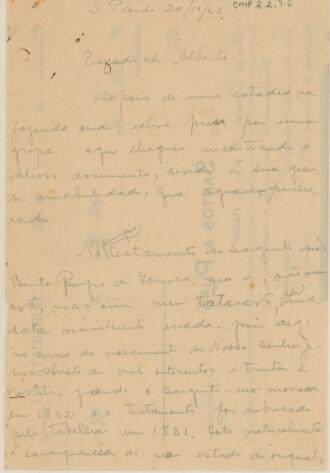 S. Paulo 20/10/65.
CMP 2.2.76
Prezado Dr. Alberto
Depois de uma estadia na
fazenda onde estive preso por uma
gripe aqui cheguei encontrando o
valioso documento, devido á sua gran
de amabilidade, que agradeço penho
rado.
No testamento do Sargento-mór
Bento
mas sim meu tataravô, uma
data visivelmente errada, pois diz
anno do nascimento de Nosso Senhor Je
sus Christo de mil oitocentos e trinta e
quando o Sargento-mór morreu
em 1832 e o testamento foi
pelo tabelião em 1831. Isto naturalmente
é consequencia do mau estado do original,